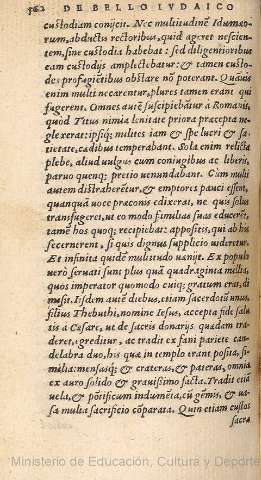 562 DE BELLO IVDAICO
custodiam conijcit. Nec multitudinē Idumæ-
orum, abductis rectoribus, quid ageret nescien-
tem, sine custodia habebat: sed diligentioribus
eam custodijs amplectebatur: & tamen custo-
des profugiētibus obstare nō poterant. Quāuis
enim multi necarentur, plures tamen erant qui
fugerent. Omnes autē suscipiebātur à Romanis,
quod Titus nimia lenitate priora præcepta ne-
glexerat: ipsiq; milites iam & spe lucri & sa-
tietate, cædibus temperabant. Sola enim relicta
plebe, aliud uulgus cum coniugibus ac liberis,
paruo quenq; pretio uenundabant. Cùm multi
autem distraherētur, & emptores pauci essent,
quanquā uoce præconis edixerat, ne quis solus
transfugeret, ut eo modo familias suas educerēt,
tamē hos quoq; recipiebat: appositis, qui ab his
secernerent, si quis dignus supplicio uideretur.
Et infinita quidē multitudo uænijt. Ex populo
uerò seruati sunt plus quā quadraginta millia,
quos imperator quomodo cuiq; gratum erat, di-
misit. Iisdem autē diebus, etiam sacerdotū unus,
filius Thebuthi, nomine Iesus, accepta fide salu
tis à Cæsare, ut de sacris donarijs quædam tra-
deret, greditur, ac tradit ex fani pariete can-
delabra duo, his quæ in templo erant posita, si-
milia: mensasq; & crateras, & pateras, omnia
ex auro solido & grauissimo facta. Tradit etiā
uela, & pōtificum indumēta, cū gēmis, & ua-
sa multa sacrificio cōparata. Quin etiam custos
sacra
Ministerio de Educación, Cultura y Deporte